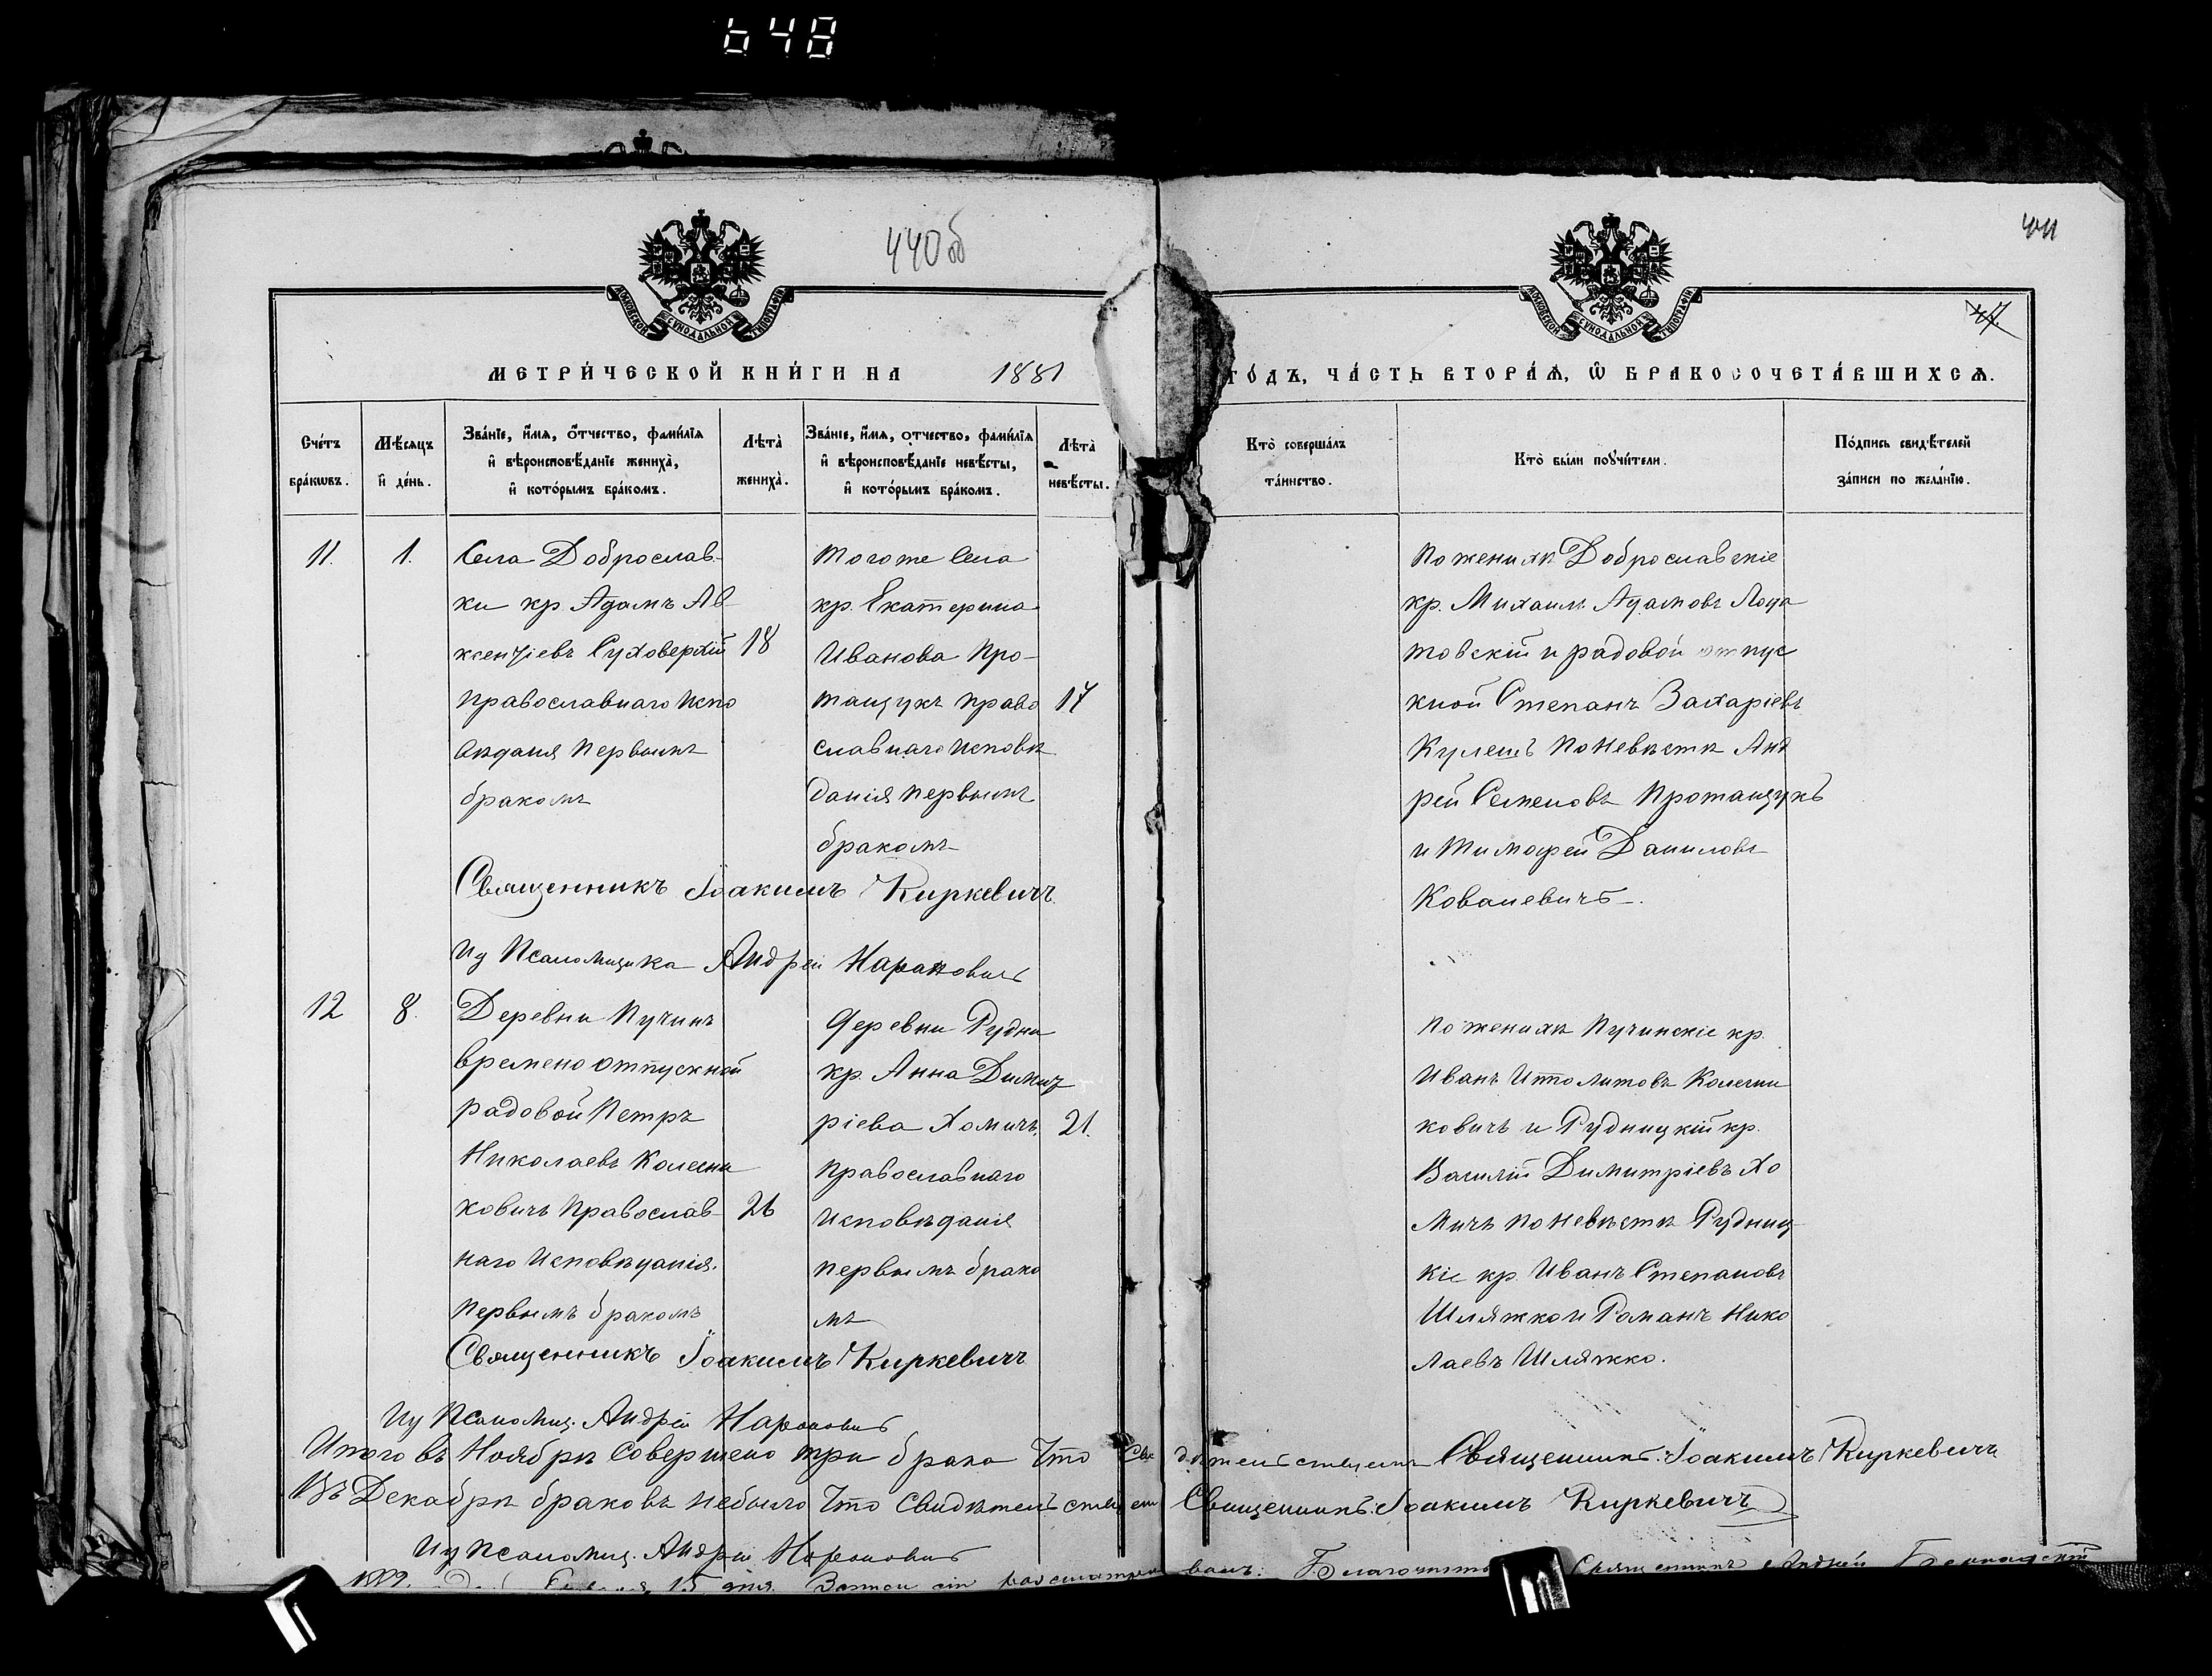 648
440 об
441
47
МОСКОВСКОЙ СѴНОДАЛЬНОЙ ТИПОГРАФІИ
МОСКОВСКОЙ СѴНОДАЛЬНОЙ ТИПОГРАФІИ
МЕТРИ́ЧЕСКОЙ КНИ́ГИ НА 1881 ГО́ДЪ, ЧА́СТЬ ВТОРА́Ѧ, Ѡ БРАКОСОЧЕТА́ВШИХСѦ.
Сче́тъ бра́кωвъ.
Мѣ́сѧцъ и де́нь.
Зва́нїе, и́мѧ, о́тчество, фами́лїѧ
и вѣроисповѣ́данїе жениха̀,
и кото́рымъ бра́комъ.
Лѣта̀ жениха̀.
Зва́нїе, и́мѧ, отчество, фами́лїѧ
и вѣроисповѣ́данїе невѣ́сты,
и кото́рымъ бра́комъ.
Лѣта̀ невѣ́сты.
Кто̀ соверша́лъ та́инство.
Кто̀ бы́ли порꙋчи́тели.
По́дпись свидѣ́телей за́писи по жела́нїю.
11.
1.
Села Доброслав-
ки кр. Адамъ Ав-
ксентіевъ Суховерхій
православнаго испо
вѣданія первымъ
бракомъ
18
Тогоже села
кр. Екатерина
Иванова Про-
тащукъ право
славнаго исповѣ
данія первымъ
бракомъ
17
По женихѣ Доброславскіе
кр. Михаилъ Адамовъ Лопа
товскій и рядовой отпус
кной Степанъ Захаріевъ
Кулешъ по невѣстѣ Анд
рей Семеновъ Протащукъ
и Тимофей Даниловъ
Ковалевичъ.
Священникъ Іоакимъ Киркевичъ.
И д Псаломщика Андрей Наранович
12
8.
Деревни Пучинъ
времено отпускной
рядовой Петръ
Николаевъ Колесни
ковичъ православ
наго исповѣданія.
первымъ бракомъ
26
деревни Рудни
кр. Анна Димит
ріева Хомичъ
православнаго
исповѣданія
первымъ брако
мъ
21.
По женихѣ Пучинскіе кр.
Иванъ Ипполитовъ Колесни
ковичъ и Рудницкій кр.
Василій Димитріевъ Хо
мичъ по невѣстѣ Рудниц
кіе кр. Иванъ Степановъ
Шляжко и Романъ Нико
лаевъ Шляжко.
Священникъ Іоакимъ Киркевичъ
И д Псаломщ. Андрей Наранович
Итого въ Ноябрѣ совершено три брака что свидѣтельствуемъ Священникъ Іоакимъ Киркевичъ
Въ Декабрѣ браковъ небыло что свидѣтельствуемъ Священникъ Іоакимъ Киркевичъ
И д Псаломщ. Андрей Наранович
15 дня
Священникъ Андрей